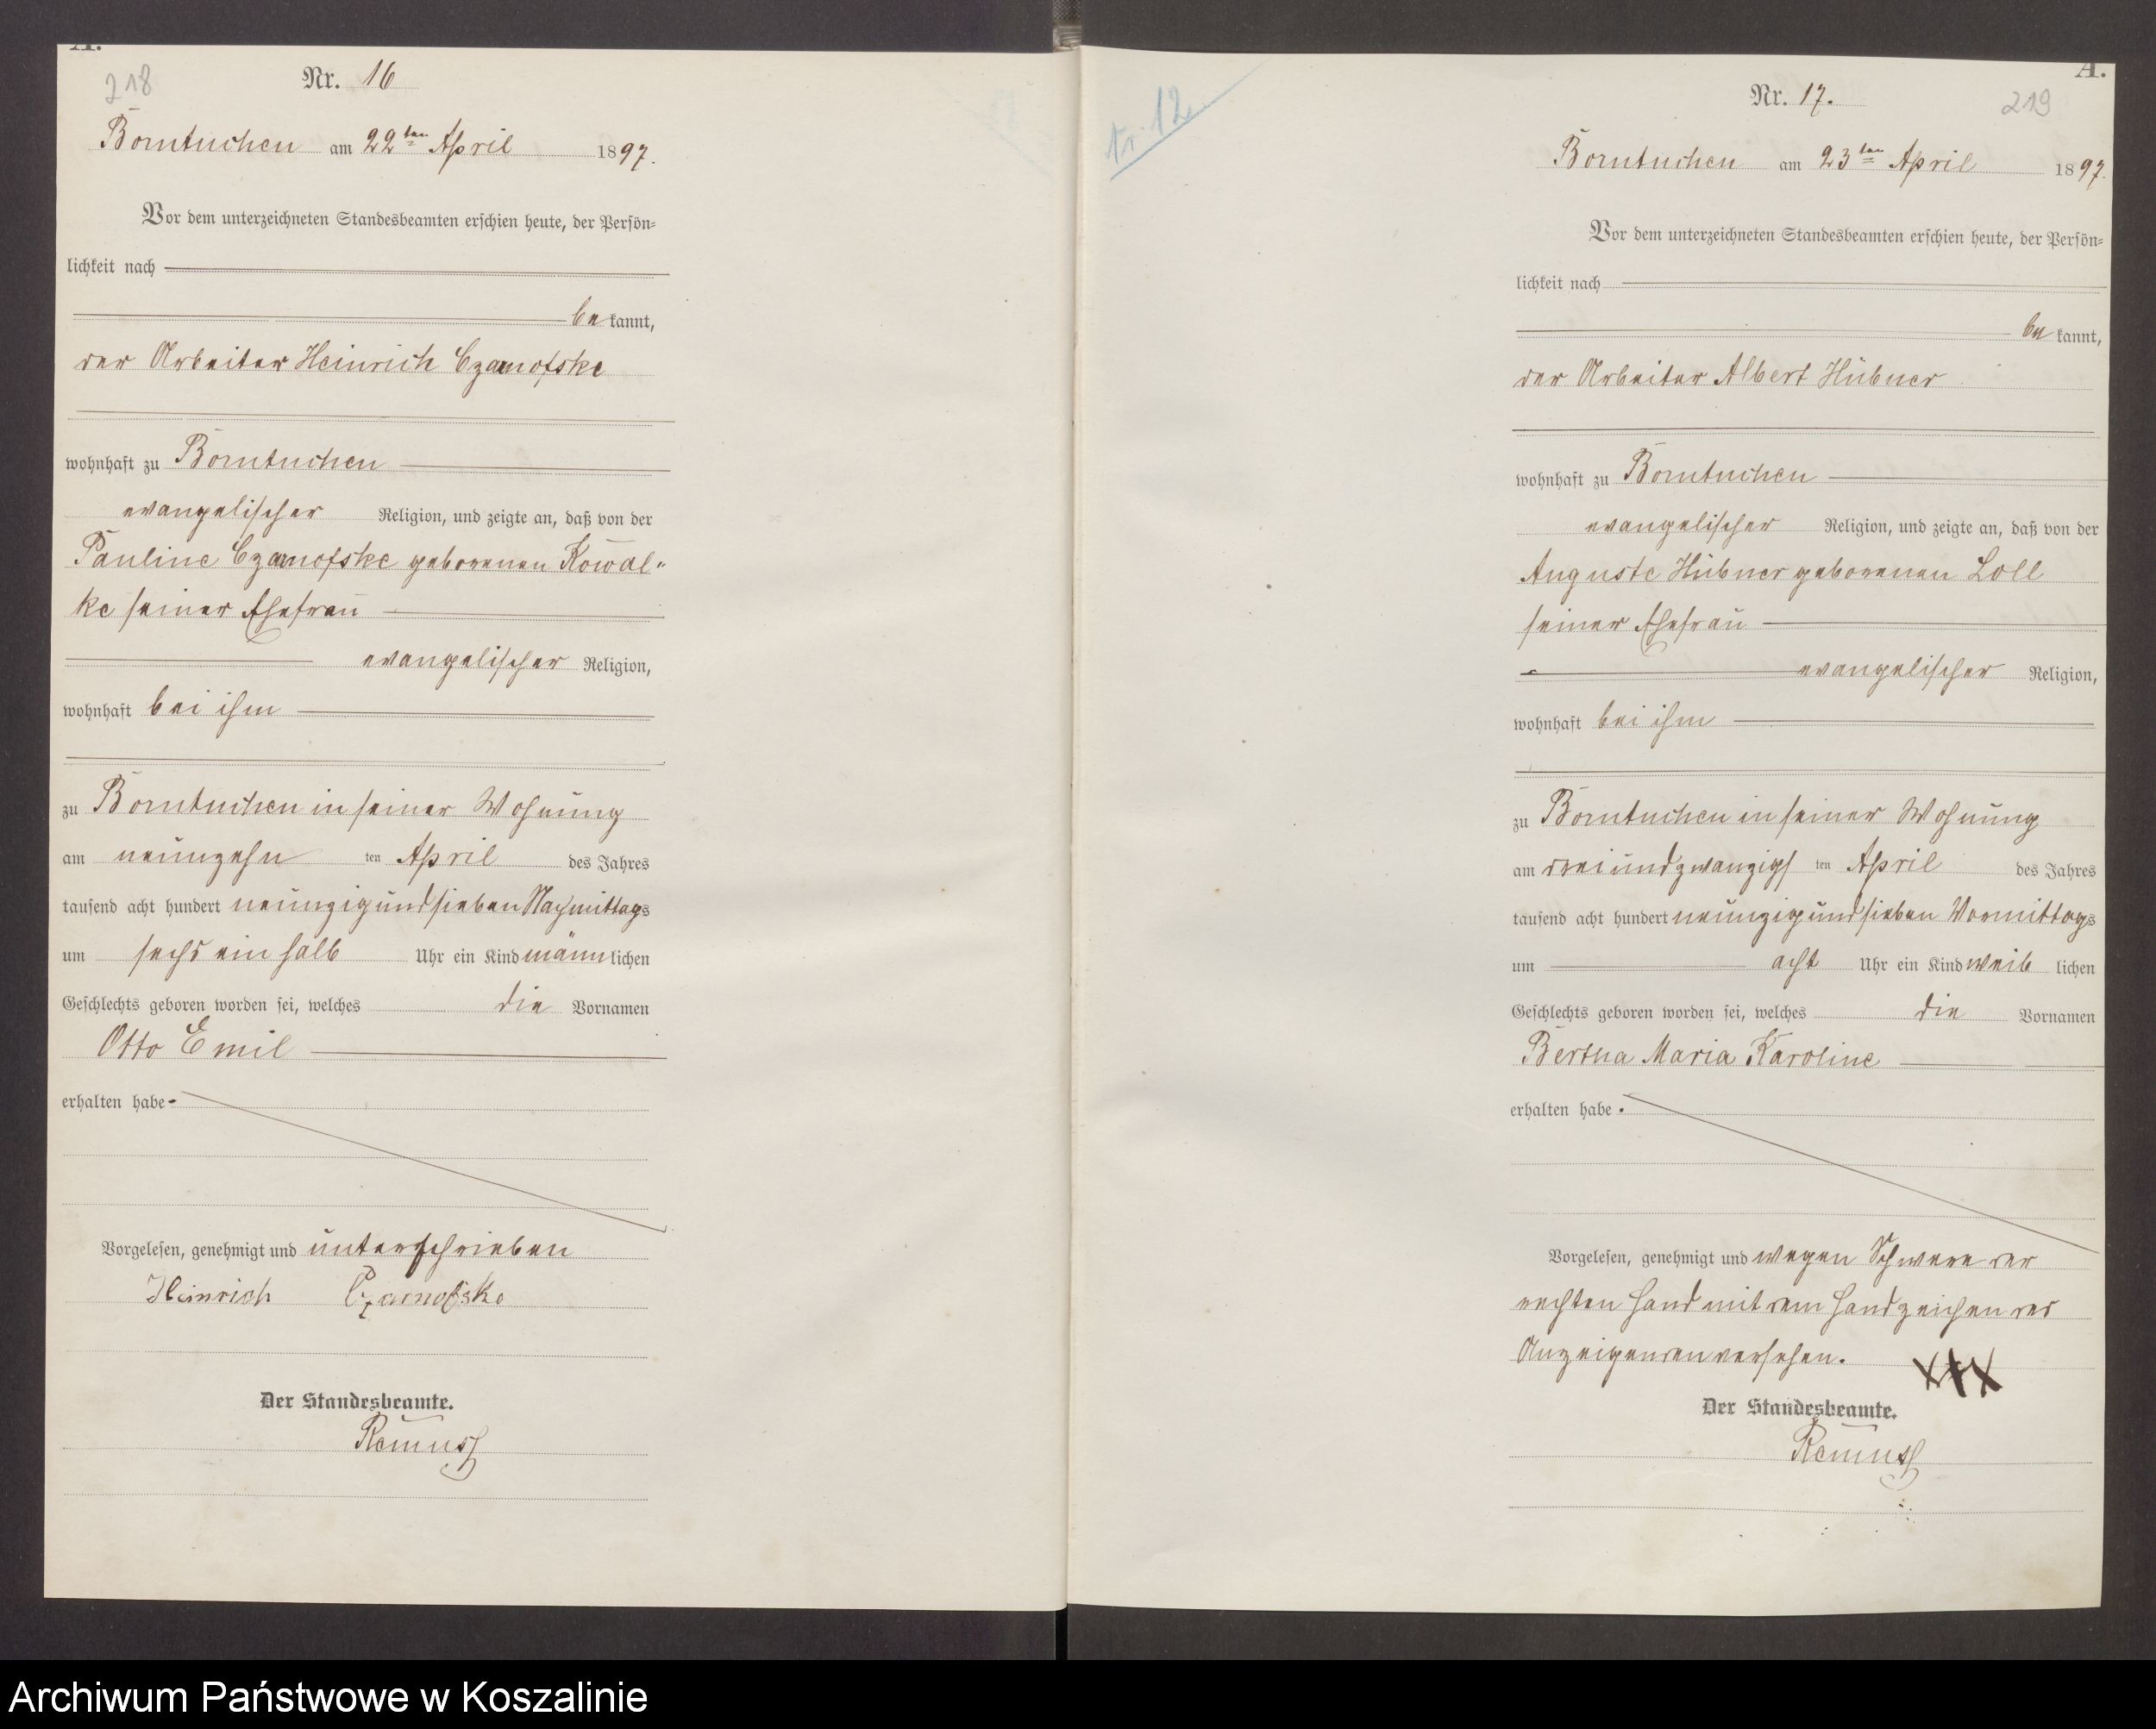 A.
218
Nr. 16
Borntuchen am 22ten April 1897.
Vor dem unterzeichneten Standesbeamten erschien heute, der Persön-
lichkeit nach
bekannt,
der Arbeiter Heinrich Czarnofske
wohnhaft zu Borntuchen
evangelischer Religion, und zeigte an, daß von der
Pauline Czarnofske geborenen Kowal-
ke seiner Ehefrau
evangelischer Religion,
wohnhaft bei ihm
zu Borntuchen in seiner Wohnung
am neunzehn ten April des Jahres
tausend acht hundert neunzig und sieben Nachmittags
um sechs ein halb Uhr ein Kind männlichen
Geschlechts geboren worden sei, welches die Vornamen
Otto Emil
erhalten habe
Vorgelesen, genehmigt und unterschrieben
Heinrich Czarnofske
Der Standesbeamte.
Remus
Nr. 12
A.
Nr. 17.
219
Borntuchen am 23ten April 1897.
Vor dem unterzeichneten Standesbeamten erschien heute, der Persön-
lichkeit nach
bekannt,
der Arbeiter Albert Hübner
wohnhaft zu Borntuchen
evangelischer Religion, und zeigte an, daß von der
Auguste Hübner geborenen Loll
seiner Ehefrau
evangelischer Religion,
wohnhaft bei ihm
zu Borntuchen in seiner Wohnung
am dreiundzwanzigs ten April des Jahres
tausend acht hundert neunzig und sieben Vormittags
um acht Uhr ein Kind weiblichen
Geschlechts geboren worden sei, welches die Vornamen
Bertha Maria Karoline
erhalten habe.
Vorgelesen, genehmigt und wegen Schwere der
rechten Hand mit dem Handzeichen des
Anzeigenden versehen. XXX
Der Standesbeamte.
Remus
Archiwum Państwowe w Koszalinie